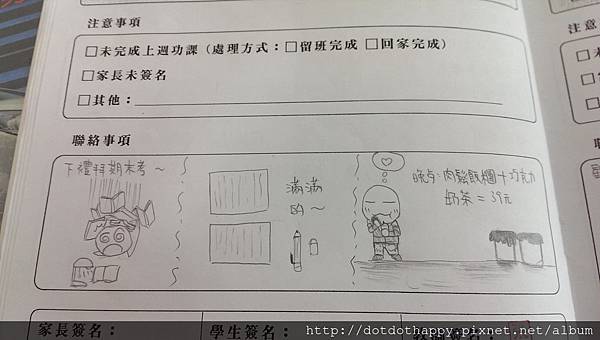 注意事項
□未完成上週功課（處理方式：□留班完成 □回家完成）
□家長未簽名
□其他：
聯絡事項
下禮拜期末考～
滿滿
的～
晚点：肉鬆飯糰＋巧克力
奶茶＝39元
家長簽名：
學生簽名：
http://dotdothappy.pixnet.net/album
注意